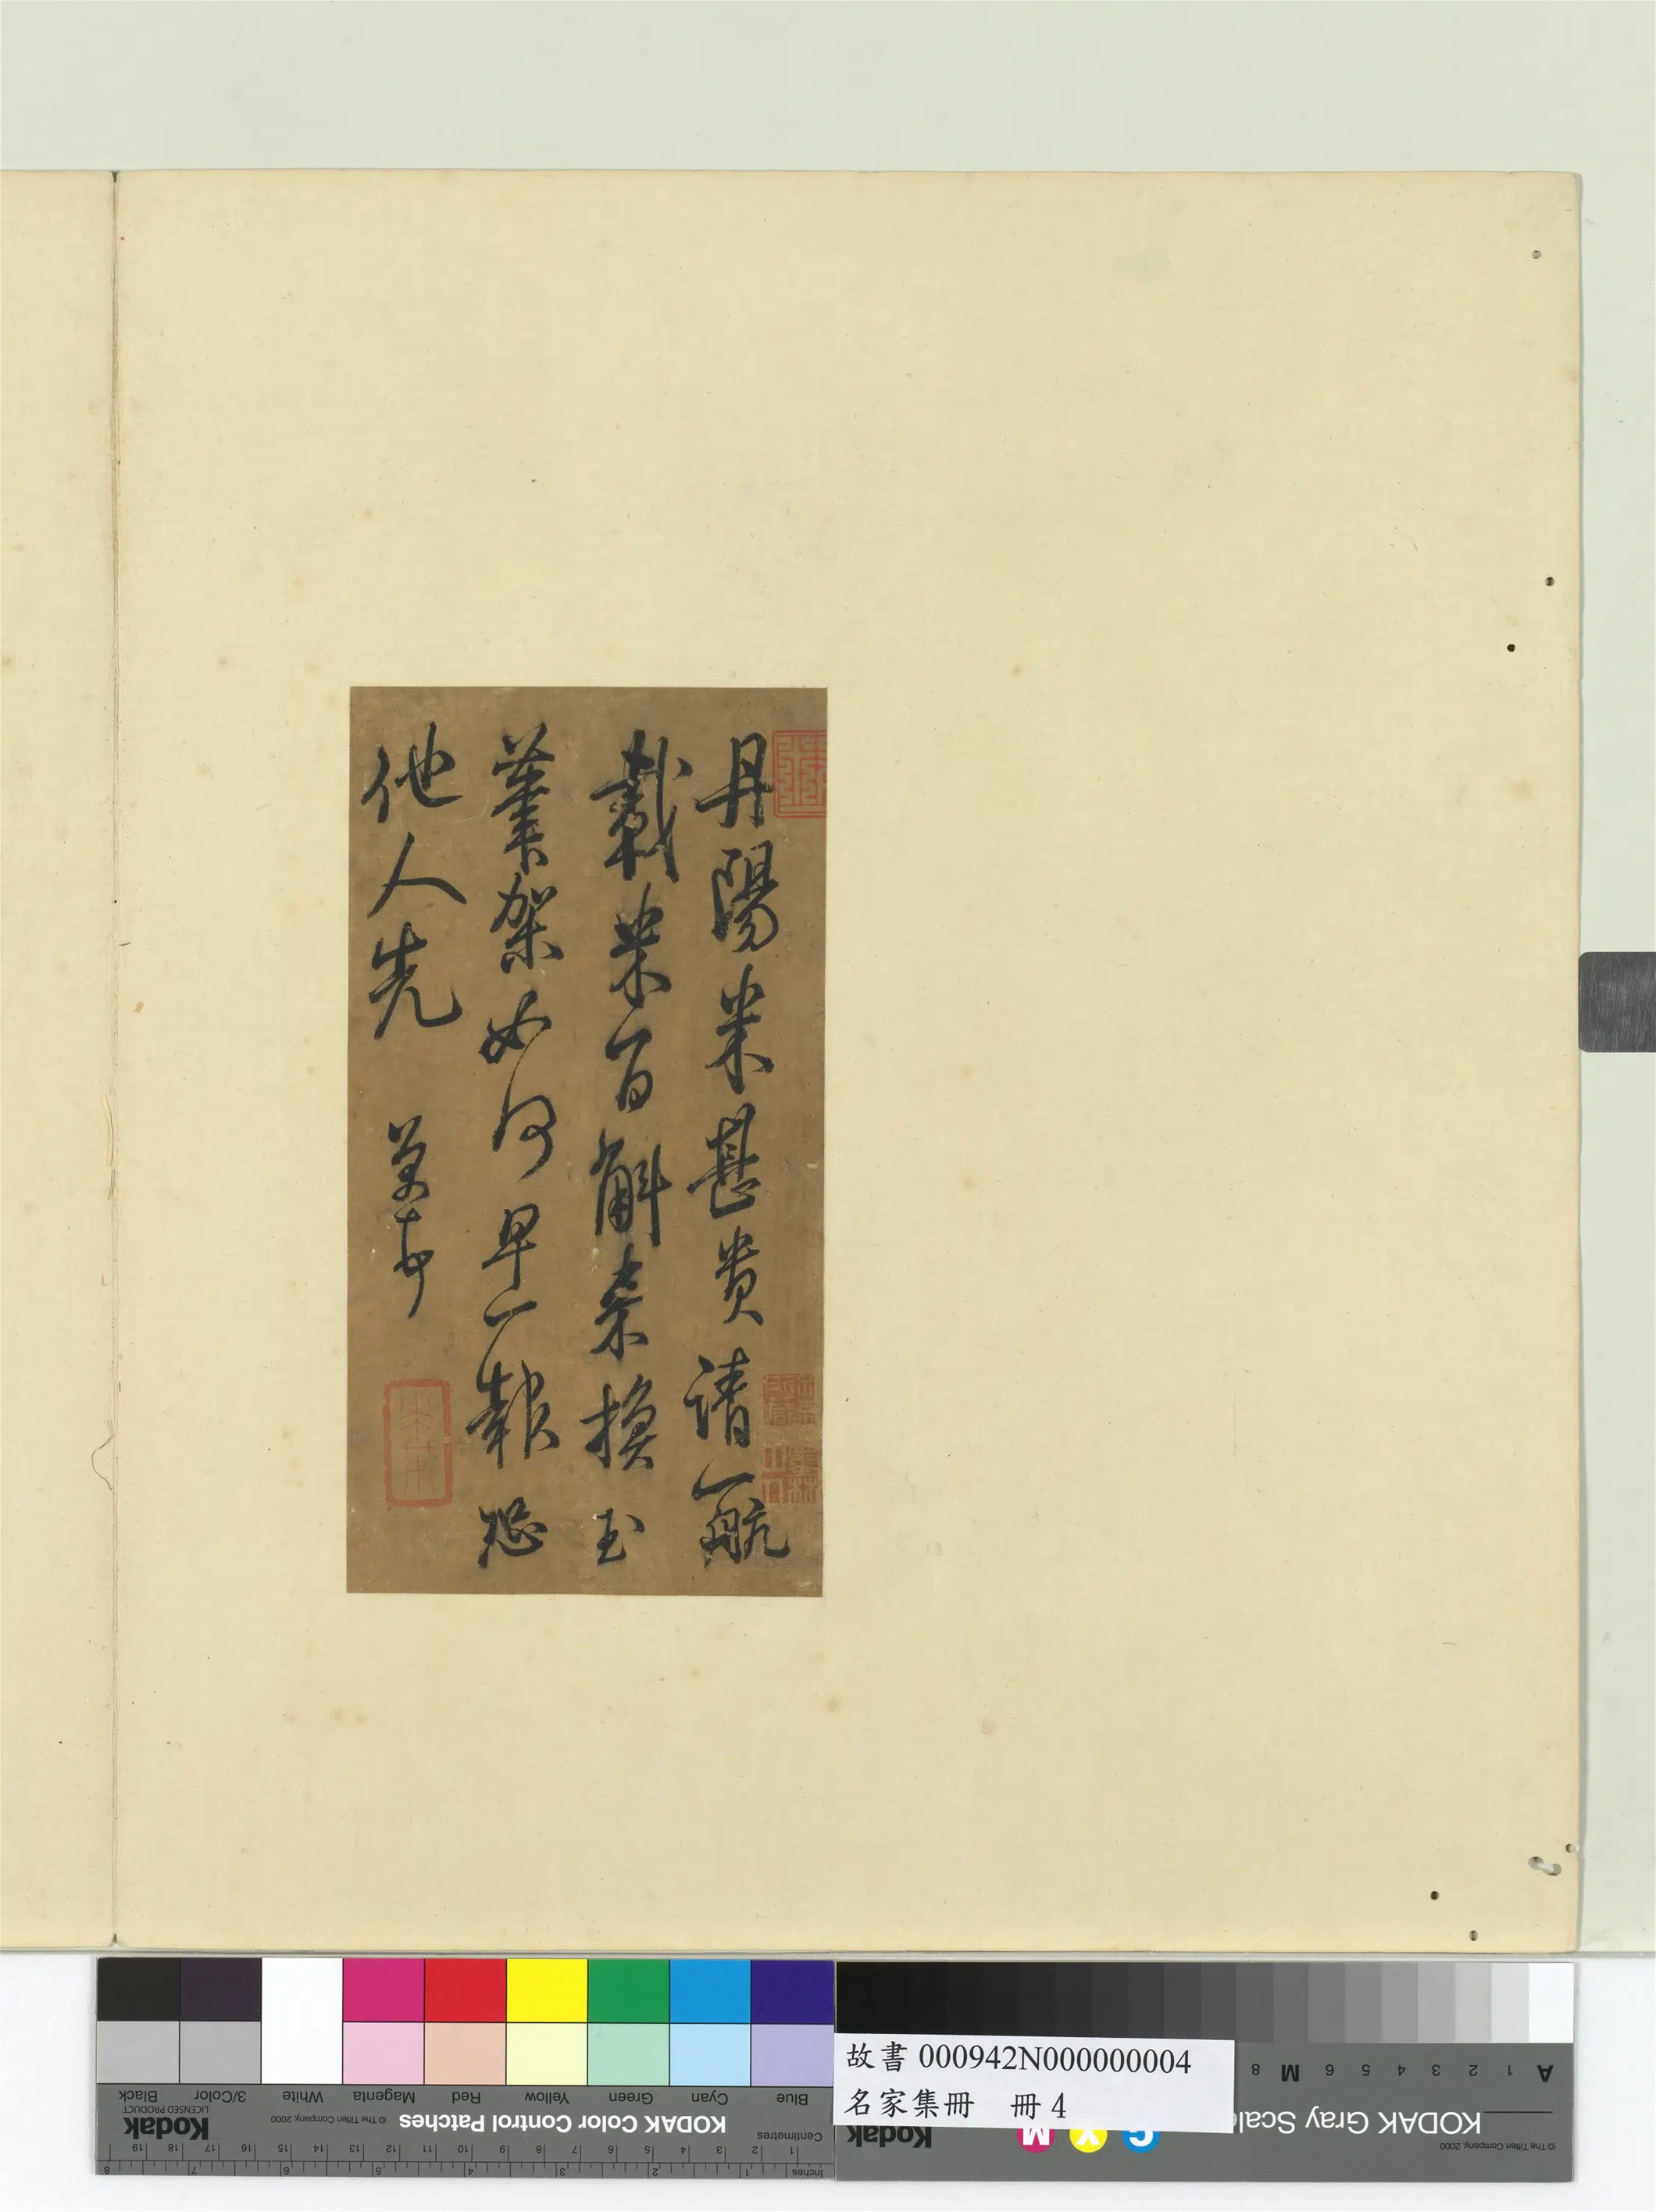 丹陽米甚貴請一航
載米百斛来換玉
筆架如何早一報恐
他人先 芾頓首
故書 000942N000000004
名家集冊 冊 4
KODAK Color Control Patches
© The Tiffen Company, 2000
Kodak
LICENSED PRODUCT
Black
3/Color
White
Magenta
Red
Yellow
Green
Cyan
Blue
Centimetres
Inches
KODAK Gray Scale
© The Tiffen Company, 2000
Kodak
C Y M
A 1 2 3 4 5 6 M 8